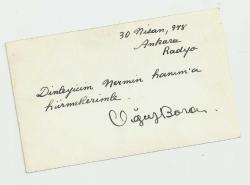 30 Nisan, 948
Ankara
Radyo
Dinleyicim Nermin hanım'a
hürmetlerimle.
Oğuz Bora